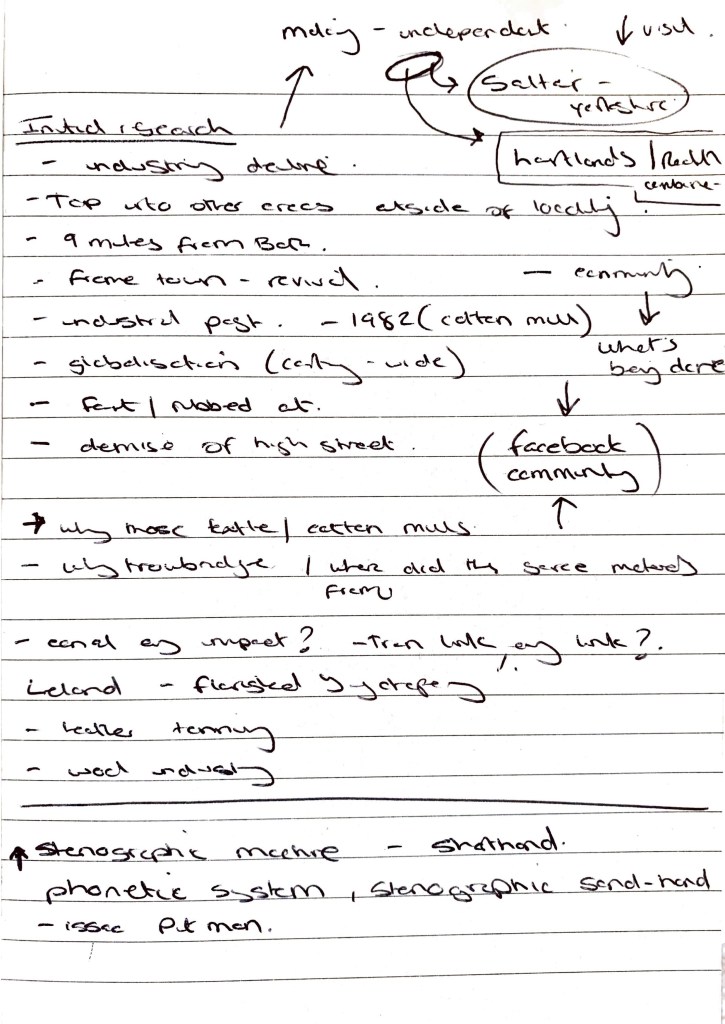 making - independent. ↓ visit.
Saltair -
yorkshire.
Initial research
- industry decline.
hartlands / Reach
- Tap into other areas outside of locality.
- 9 miles from Bath.
- frome town - revival. — community.
- industrial past. - 1982 (cotton mills)
what's
being done
- globalisation (county-wide)
- fact / rubbed at.
- demise of high street.
(facebook
community)
→ why mosc textile / cotton mills.
- why trowbridge / where did they source materials
from
- canal any impact? - Train link any link?
Ireland - flourished
- leather tanning
- wool industry
↑ stenographic machine - shorthand.
phonetic system, stenographic sond-hand
- issac Pitman.